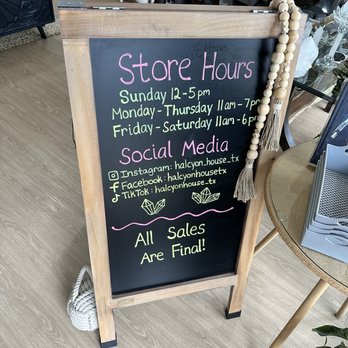 Store Hours
Sunday 12-5pm
Monday - Thursday 11am - 7pm
Friday - Saturday 11am - 6pm
Social Media
Instagram: halcyon_house_tx
Facebook: halcyonhousetx
TikTok: halcyonhouse_tx
All Sales
Are Final!